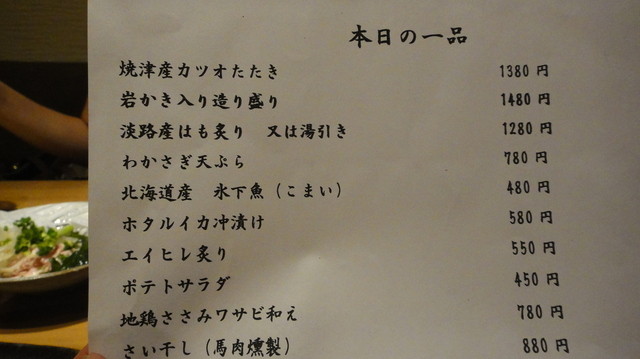 本日の一品
焼津産カツオたたき 1380 円
岩かき入り造り盛り 1480 円
淡路産はも炙り 又は湯引き 1280 円
わかさぎ天ぷら 780 円
北海道産 氷下魚(こまい) 480 円
ホタルイカ沖漬け 580 円
エイヒレ炙り 550 円
ポテトサラダ 450 円
地鶏ささみワサビ和え 780 円
さい干し(馬肉燻製) 880 円